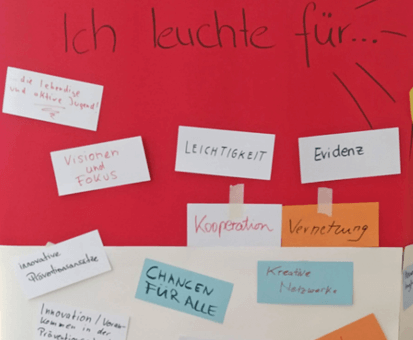 Ich leuchte für...
...die lebendige
und aktive Jugend!
VISIONEN
und
FOKUS
LEICHTIGKEIT
Evidenz
Kooperation
Vernetzung
Innovative
Präventionsansätze
CHANCEN
FÜR ALLE
Kreative
Netzwerke
Innovation/
kommen in der